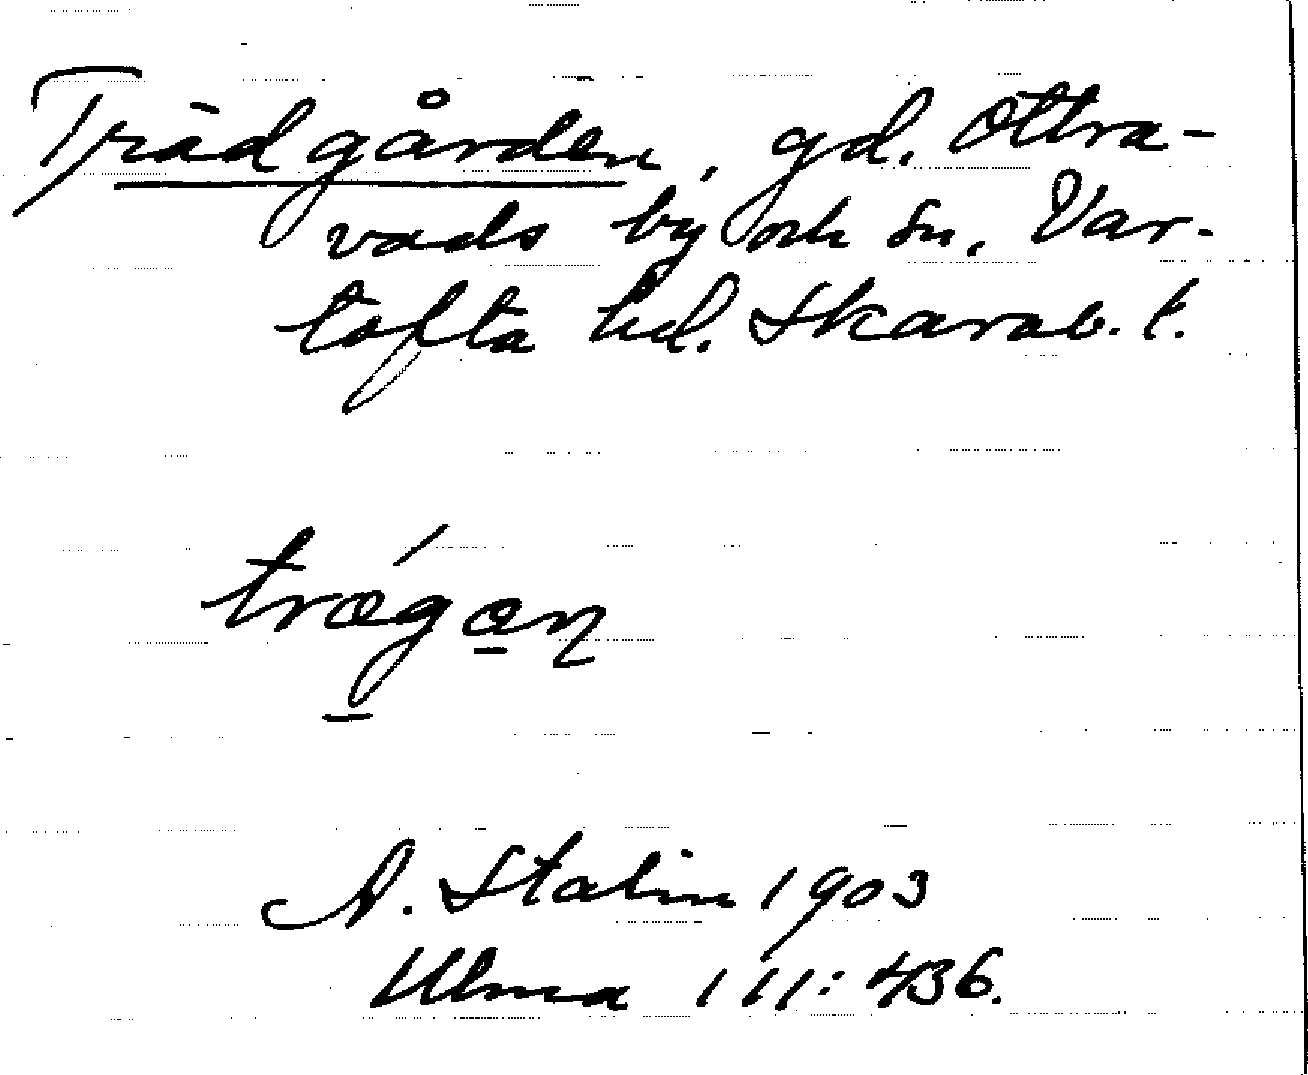 Trädgården, gd. Ottra-
vads by och sn, Var-
tofta hd. Skarab. l.
trǽgan
A. Stalin 1903
Ulma 111:436.